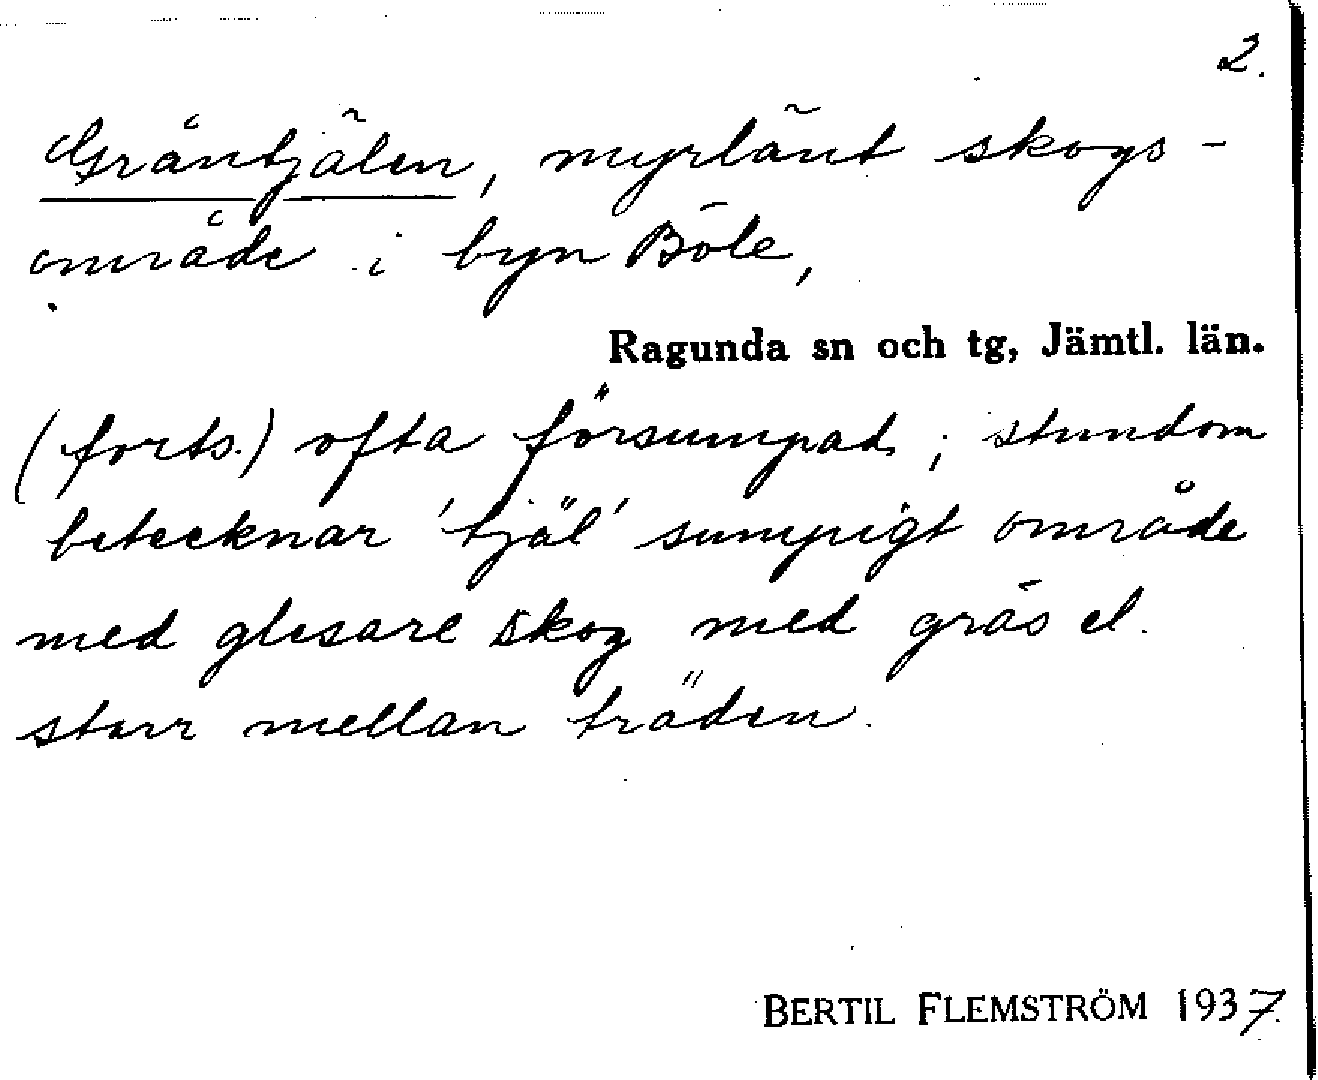 2.
Gråntjälen, myrlänt skogs-
område i byn Böle,
Ragunda sn och tg, Jämtl. län.
(forts.) ofta försumpad; stundom
betecknar 'tjäl' sumpigt område
med glesare skog med gräs el.
starr mellan träden.
BERTIL FLEMSTRÖM 1937